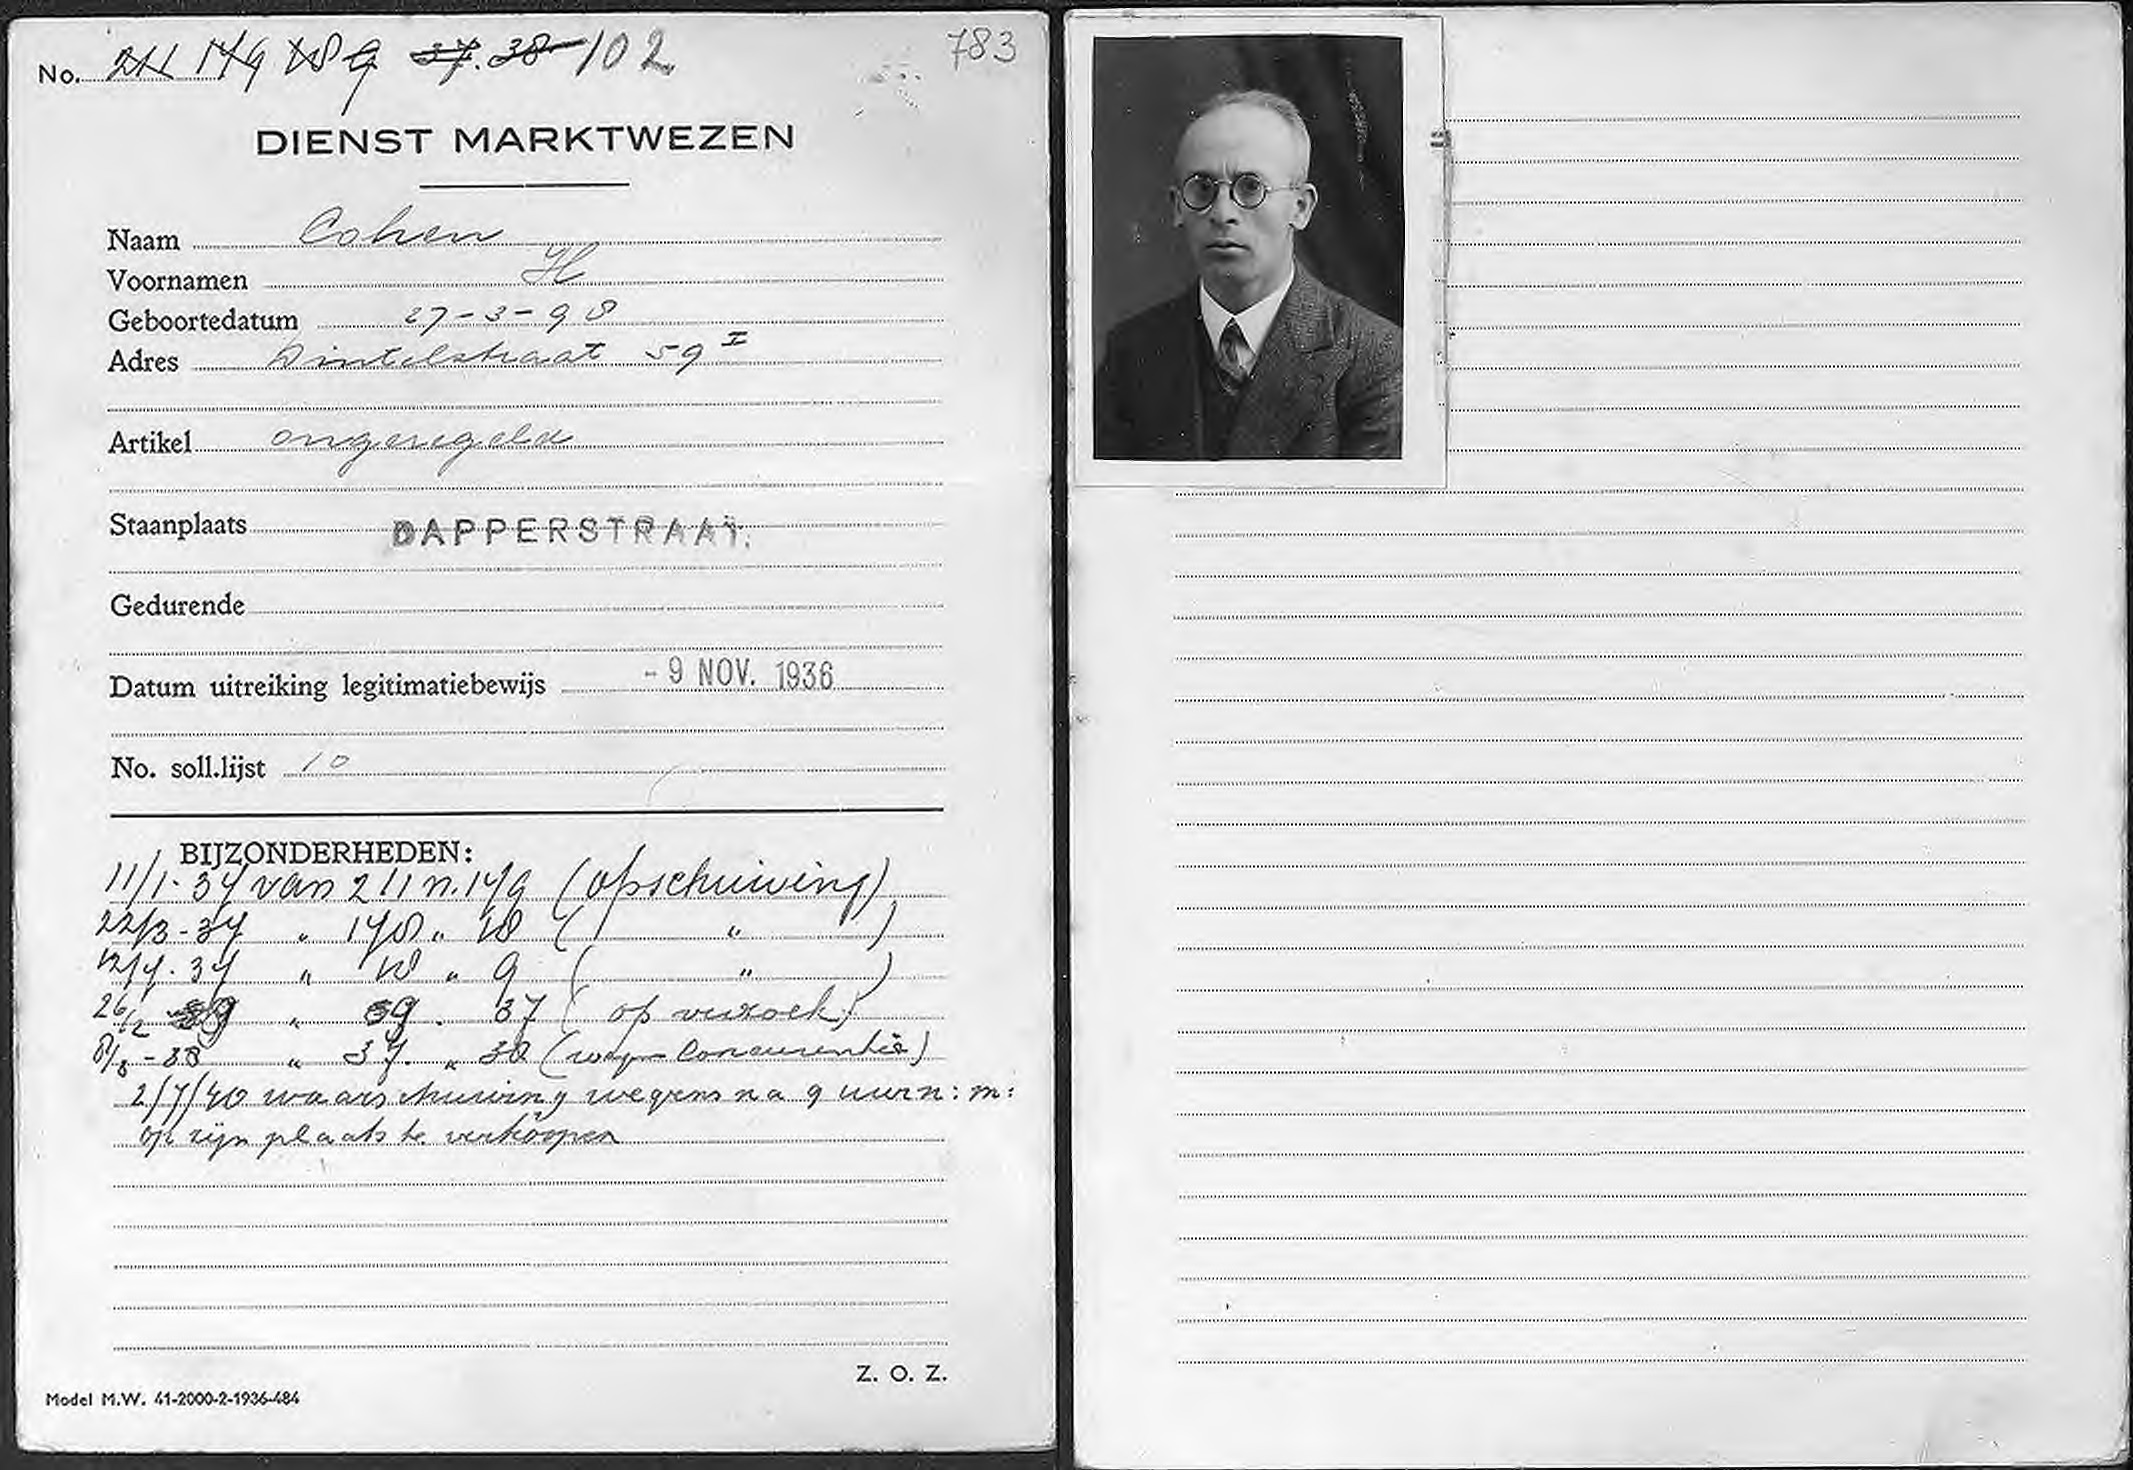 No. 211 149 18 9 37. 38 102
783
DIENST MARKTWEZEN
Naam Cohen
Voornamen H
Geboortedatum 27-3-98
Adres Dintelstraat 59 I
Artikel ongeregeld
Staanplaats DAPPERSTRAAT.
Gedurende
Datum uitreiking legitimatiebewijs - 9 NOV. 1936
No. soll.lijst 10
BIJZONDERHEDEN:
11/1-37 van 211 n. 149 (opschuiving)
22/3-37 " " 18 ( " )
12/4-37 " 18 " 9 ( " )
26/2 " 37 (op verzoek)
8/8-38 " 37. " 38 (wegens Concurentie)
2/7/40 waarschuwing wegens na 9 uur n: m:
op zijn plaats te verkoopen
Z. O. Z.
Model M.W. 41-2000-2-1936-484